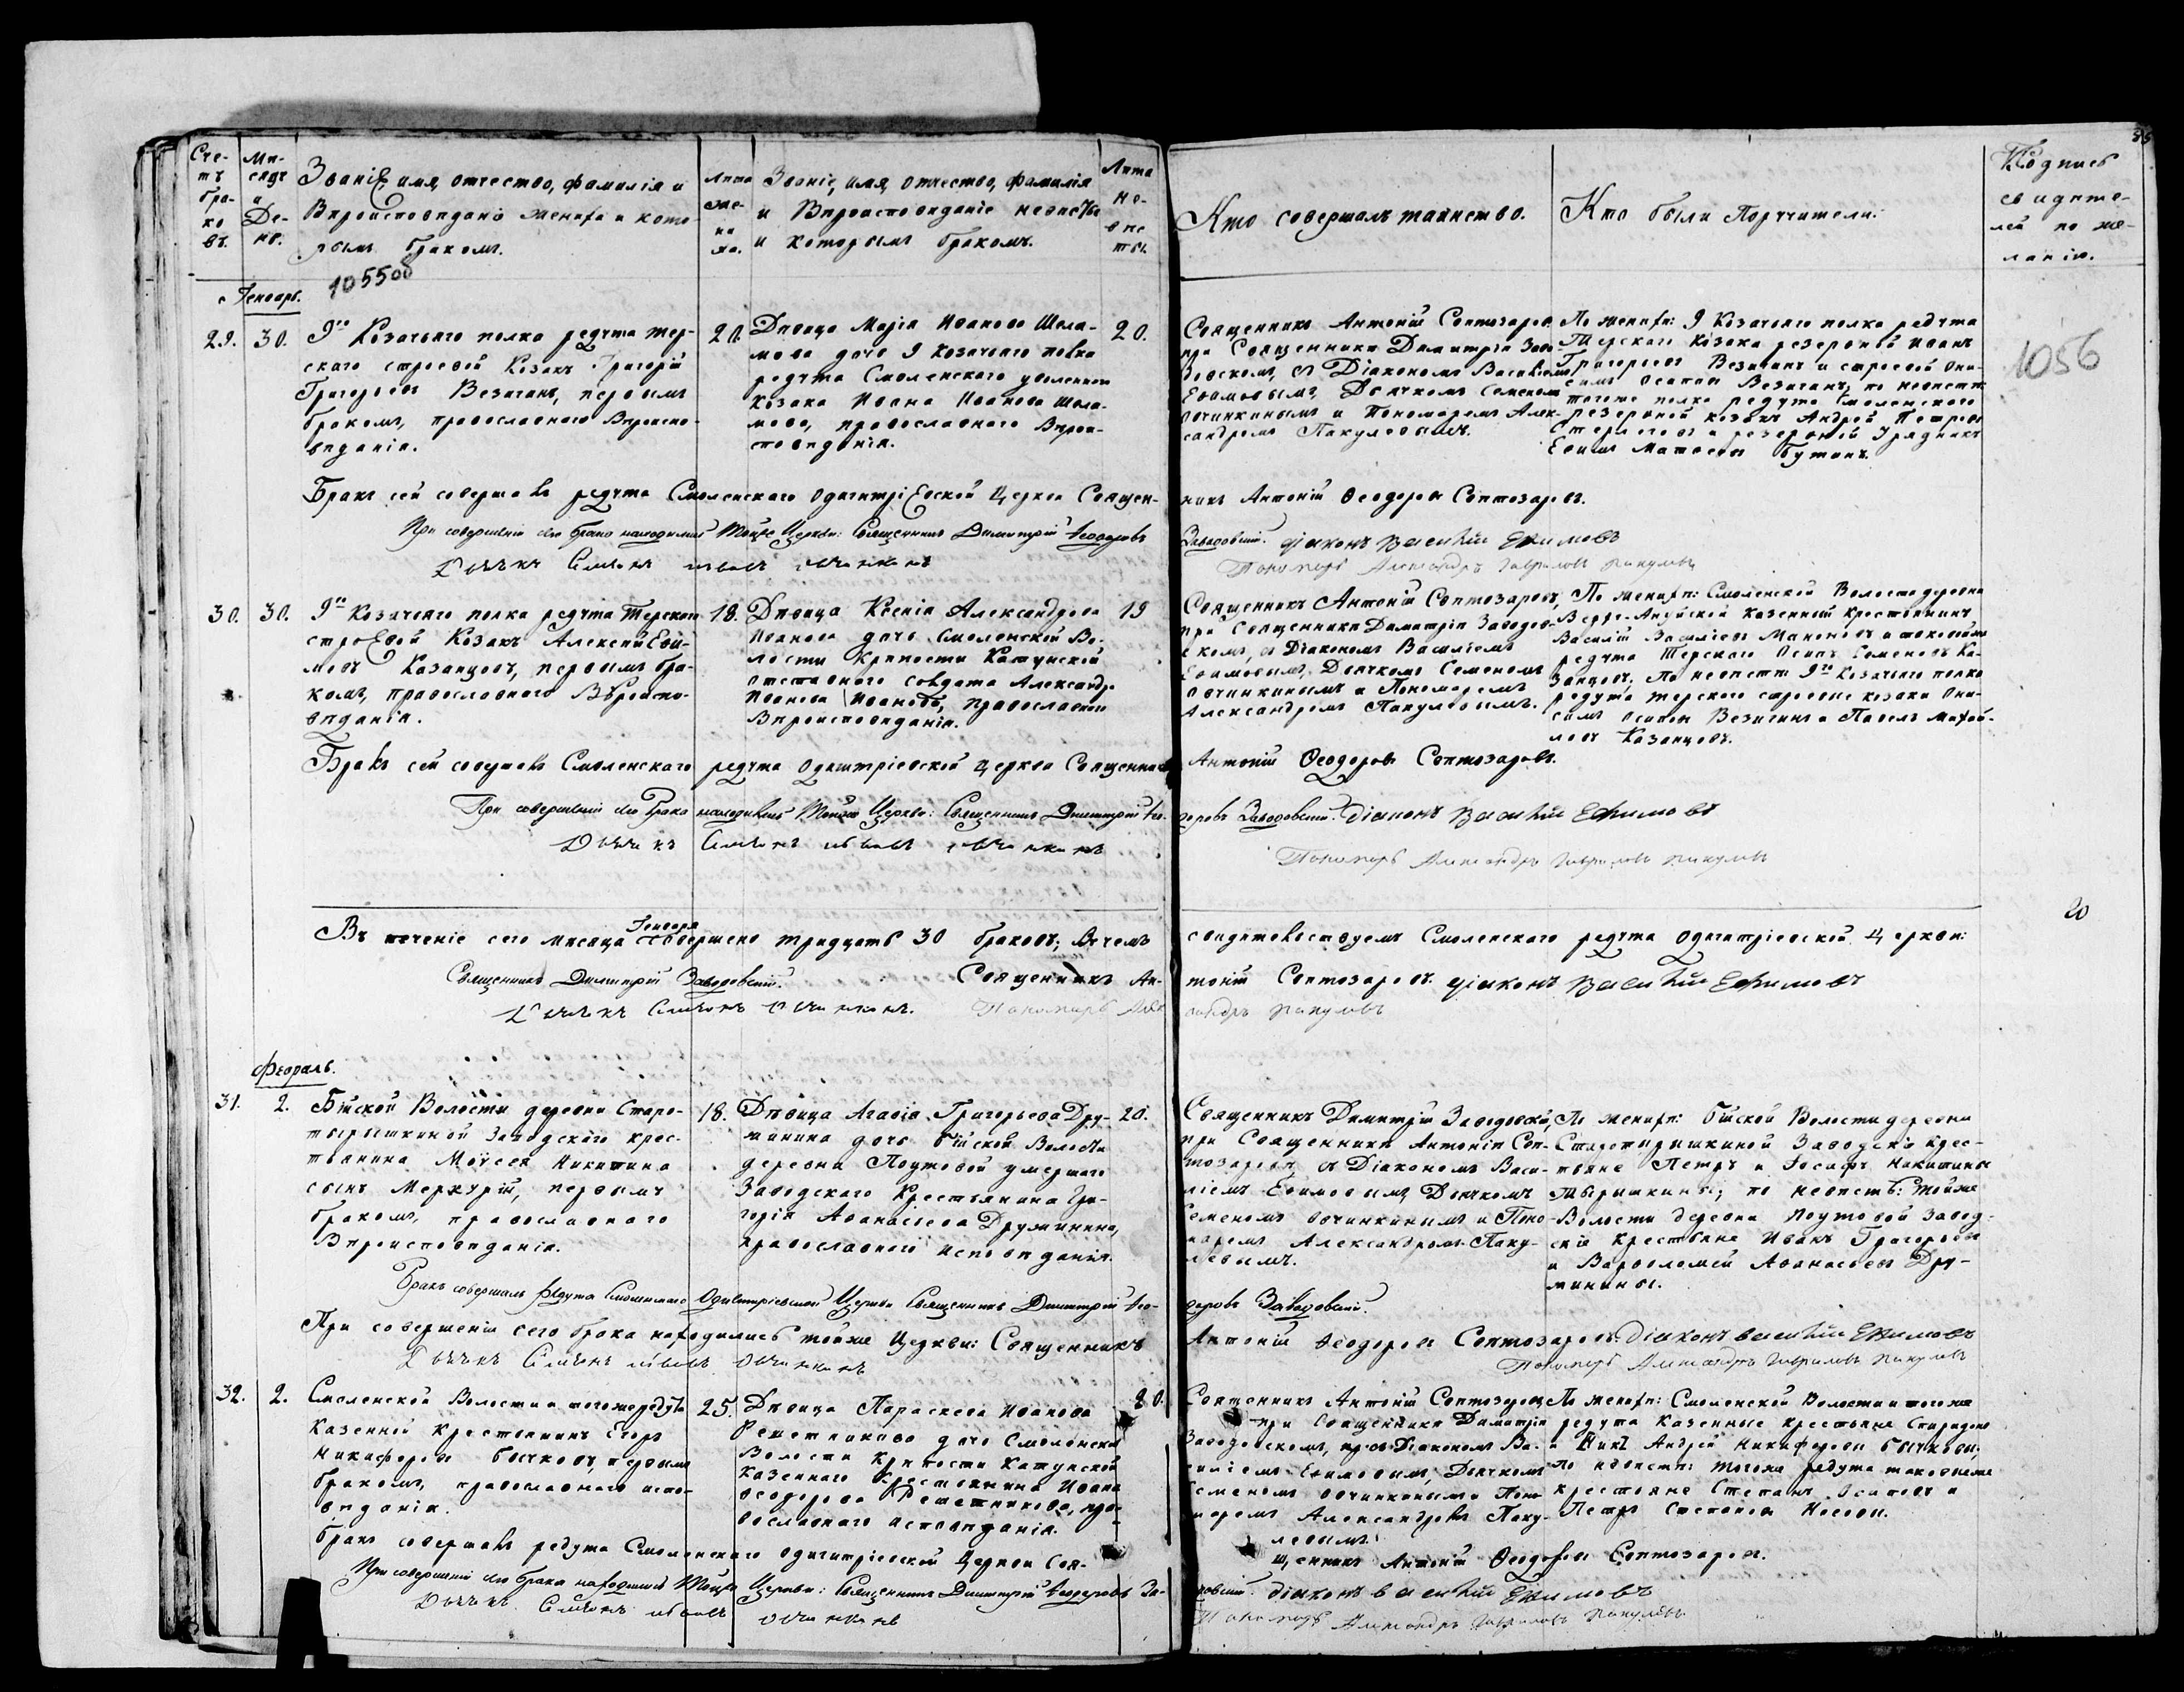 Сче-
тъ
бра-
ко
въ.
Мѣ-
сяцъ
и
Де-
нь.
Званіе, имя, отчество, фамилія и
Вѣроисповѣданіе жениха и кото
рымъ бракомъ.
Лѣта
же-
ни
ха.
Званіе, имя, отчество, фамилія
и Вѣроисповѣданіе невѣсты
и которымъ бракомъ.
Лѣта
не-
вѣс
ты.
Кто совершалъ таинство.
Кто были Поручители.
Подпись
свидѣте-
лей по же-
ланію.
1055об
Генварь.
29.
30.
9го Козачьяго полка редута Тер-
скаго строевой Козакъ Григорій
Григорьевъ Везигинъ, первымъ
бракомъ, православнаго Вѣроиспо-
вѣданія.
20.
Дѣвица Марія Иванова Шела-
мова дочь 9 Козачьяго полка
редута Смоленскаго уволеннаго
Козака Ивана Иванова Шела-
мова, православнаго Вѣрои-
сповѣданія.
20.
Священникъ Антоній Свѣтозаровъ
при Священникѣ Димитріи Заво-
довскомъ, съ Діакономъ Василіемъ
Ефимовымъ, Дьячкомъ Семеномъ
Овчинкинымъ и Пономаремъ Алек-
сандромъ Пакулевымъ.
По женихѣ: 9 Козачьяго полка редута
Терскаго Козака резервной Иванъ
Григорьевъ Везигинъ и строевой Они-
симъ Осиповъ Везигинъ, по невѣстѣ
тогоже полка редута Смоленскаго
резервной козакъ Андрей Петровъ
и резервной Урядникъ
Ефимъ Матвеевъ
1056
Бракъ сей совершалъ редута Смоленскаго Одигитріевской Церкви Священ-
никъ Антоній Ѳеодоровъ Свѣтозаровъ.
При совершеніи сего брака находились Тойже Церкви: Священникъ Димитрій Ѳеодоровъ
Заводовскій. діаконъ Василій Ефимовъ
Дьячекъ Семенъ Овчинкинъ
Пономарь Александръ Гавриловъ Пакулевъ
30.
30.
9го Козачьяго полка редута Терскаго
строевой Козакъ Алексѣй Ефи-
мовъ Казанцовъ, первымъ бра-
комъ, православнаго Вѣроиспо-
вѣданія.
18.
Дѣвица Ксенія Александрова
Иванова дочь Смоленской Во-
лости Крѣпости Катунской
отставнаго солдата Александра
Иванова Ивановъ, православнаго
Вѣроисповѣданія.
19
Священникъ Антоній Свѣтозаровъ,
при Священникѣ Димитріи Заводов-
скомъ, съ Діакономъ Василіемъ
Ефимовымъ, Дьячкомъ Семеномъ
Овчинкинымъ и Пономаремъ
Александромъ Пакулевымъ.
По женихѣ: Смоленской Волости деревни
Верхъ-Ануйской казенной крестьянинъ
Василій Василіевъ и таковойже
редута Терскаго Осипъ Семеновъ Ка-
занцовъ; По невѣстѣ: 9го Козачьяго полка
редута Терскаго строевые козаки Они-
симъ Осиповъ Везигинъ и Павелъ Михай-
ловъ Казанцовъ.
Бракъ сей совершалъ Смоленскаго редута Одигитріевской Церкви Священникъ
Антоній Ѳеодоровъ Свѣтозаровъ.
При совершеніи сего Брака находились Тойже Церкви: Священникъ Димитрій Ѳео-
доровъ Заводовскій. діаконъ Василій Ефимовъ
Дьячекъ Семенъ Овчинкинъ
Пономарь Александръ Гавриловъ Пакулевъ
Генваря
Въ теченіе сего мѣсяца совершено тридцать 30 браковъ; въ чемъ
свидѣтельствуемъ Смоленскаго редута Одигитріевской Церкви:
20
Священникъ Димитрій Заводовскій. Священникъ Ан-
тоній Свѣтозаровъ. діаконъ Василій Ефимовъ
Дьячекъ Семенъ Овчинкинъ. Пономарь Алек
сандръ Пакулевъ
Февраль.
31.
2.
Бійской Волости деревни Старо-
тырышкиной Заводскаго крес-
тьянина Моѵсея Никитина
сынъ Меркурій, первымъ
бракомъ, православнаго
Вѣроисповѣданія.
18.
Дѣвица Агафія Григорьева Дру-
жинина дочь Бійской Волости
деревни Шутовой умершаго
Заводскаго Крестьянина Гри-
горія Аѳанасіева Дружинина,
православнаго исповѣданія.
20.
Священникъ Димитрій Заводовскій,
при Священникѣ Антоніи Свѣ-
тозаровѣ, съ Діакономъ Васи-
ліемъ Ефимовымъ, Дьячкомъ
Семеномъ Овчинкинымъ и Поно-
маремъ Александромъ Паку-
левымъ.
По женихѣ: Бійской Волости деревни
Старотырышкиной Заводскіе крес-
тьяне Петръ и Іосафъ Никитины
Тырышкины; по невѣстѣ: тойже
Волости деревни Шутовой Завод-
скіе крестьяне Иванъ Григорьевъ
и Варѳоломей Аѳанасьевъ Дру-
жинины.
Бракъ совершалъ Редута Смоленскаго Одигитріевской Церкви Священникъ Димитрій Ѳео-
доровъ Заводовскій.
При совершеніи сего брака находились тойже Церкви: Священникъ
Антоній Ѳеодоровъ Свѣтозаровъ. діаконъ Василій Ефимовъ
Дьячекъ Семенъ Овчинкинъ
Пономарь Александръ Гавриловъ Пакулевъ
32.
2.
Смоленской Волости и тогоже редута
Казенной Крестьянинъ Егоръ
Никифоровъ Бычковъ, первымъ
бракомъ, православнаго испо-
вѣданія.
25.
Дѣвица Параскева Иванова
Решетникова дочь Смоленской
Волости Крѣпости Катунской
Казеннаго Крестьянина Ивана
Ѳеодорова Решетникова, пра-
вославнаго исповѣданія.
20.
Священникъ Антоній Свѣтозаровъ
при Священникѣ Димитріи
Заводовскомъ, съ Діакономъ Ва-
силіемъ Ефимовымъ, Дьячкомъ
Семеномъ Овчинкинымъ и Поно-
маремъ Александромъ Паку-
левымъ.
По женихѣ: Смоленской Волости и тогоже
редута Казенные крестьяне Спиридонъ
и Андрей Никифоровы Бычковы;
по невѣстѣ: тогоже редута таковыеже
крестьяне Степанъ Осиповъ и
Петръ Степановъ Носовы.
Бракъ совершалъ редута Смоленскаго Одигитріевской Церкви Свя-
щенникъ Антоній Ѳеодоровъ Свѣтозаровъ.
При совершеніи сего брака находились Тойже Церкви: Священникъ Димитрій Ѳеодоровъ За-
довскій. діаконъ Василій Ефимовъ
Дьячекъ Семенъ Овчинкинъ
Пономарь Александръ Гавриловъ Пакулевъ